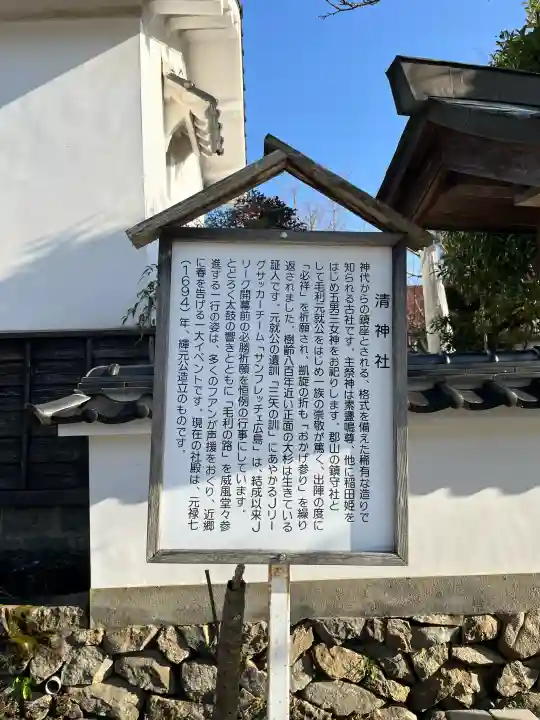 清神社
神代からの鎮座とされる、格式を備えた稀有な造りで
知られる古社です。主祭神は素盞鳴尊、他に稲田姫を
はじめ五男三女神をお祀りします。郡山の鎮守社と
して毛利元就公をはじめ一族の崇敬が篤く、出陣の度に
「必祥」を祈願され、凱旋の折も「おかげ参り」を繰り
返されました。樹齢八百年近い正面の大杉は生きている
証人です。元就公の遺訓「三矢の訓」にあやかるＪリー
グサッカーチーム「サンフレッチェ広島」は、結成以来Ｊ
リーグ開幕前の必勝祈願を恒例の行事にしています。
とどろく太鼓の響きとともに「毛利の路」を威風堂々参
進する一行の姿は、多くのファンが声援をおくり、近郷
に春を告げる一大イベントです。現在の社殿は、元禄七
(1694)年、輝元公造立のものです。